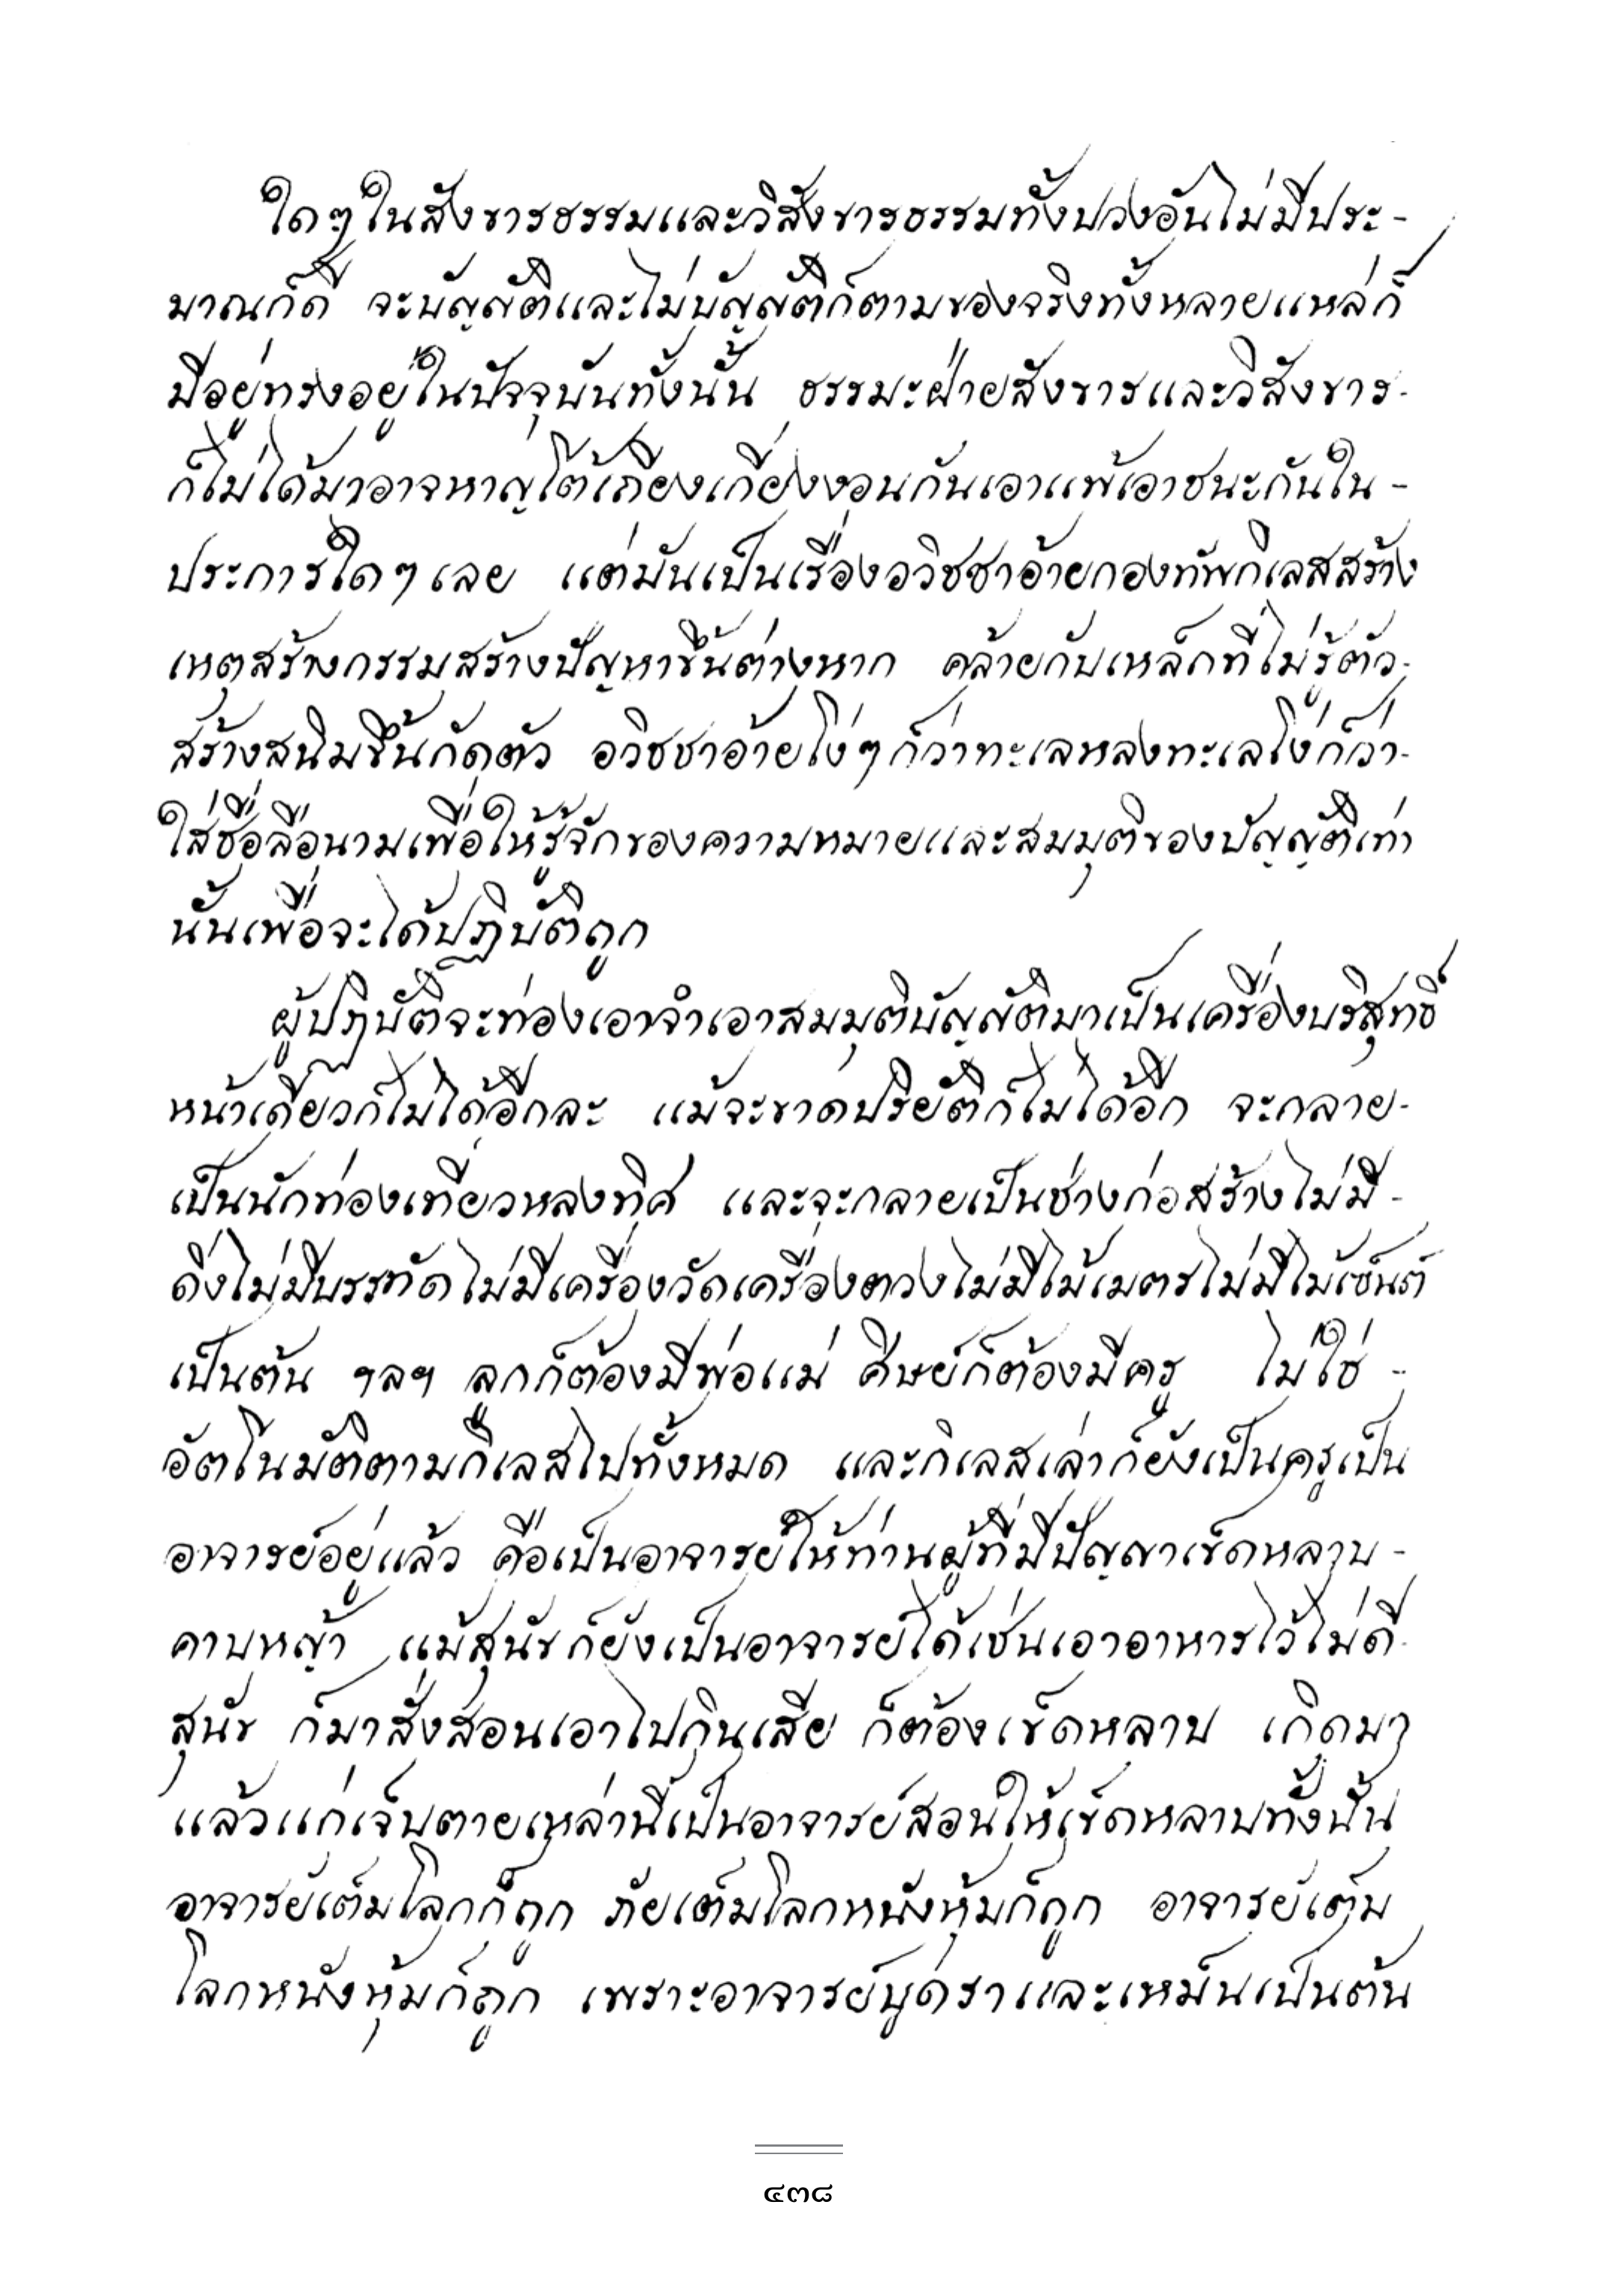 ใดๆในสังขารธรรมและวิสังขารธรรมทั้งปวงอันไม่มีประ-
มาณก็ดี จะบัญญัติและไม่บัญญัติก็ตามของจริงทั้งหลายแหล่ก็
มีอยู่ทรงอยู่ในปัจจุบันทั้งนั้น ธรรมะฝ่ายสังขารและวิสังขาร-
ก็ไม่ได้มาอาจหาญโต้เถียงเกี่ยงงอนกันเอาแพ้เอาชนะกันใน-
ประการใดๆเลย แต่มันเป็นเรื่องอวิชชาอ้ายกองทัพกิเลสสร้าง
เหตุสร้างกรรมสร้างปัญหาขึ้นต่างหาก คล้ายกับเหล็กที่ไม่รู้ตัว-
สร้างสนิมขึ้นกัดตัว อวิชชาอ้ายโง่ๆก็ว่าทะเลหลงทะเลโง่ก็ว่า-
ใส่ชื่อลือนามเพื่อให้รู้จักของความหมายและสมมุติของบัญญัติเท่า
นั้นเพื่อจะได้ปฏิบัติถูก
ผู้ปฏิบัติจะท่องเอาจำเอาสมมุติบัญญัติมาเป็นเครื่องบริสุทธิ์
หน้าเดียวก็ไม่ได้อีกละ แม้จะขาดปริยัติก็ไม่ได้อีก จะกลาย-
เป็นนักท่องเที่ยวหลงทิศ และจะกลายเป็นช่างก่อสร้างไม่มี-
ดิ่งไม่มีบรรทัดไม่มีเครื่องวัดเครื่องตวงไม่มีไม้เมตรไม่มีไม้เซ็นต์
เป็นต้น ฯลฯ ลูกก็ต้องมีพ่อแม่ ศิษย์ก็ต้องมีครู ไม่ใช่-
อัตโนมัติตามกิเลสไปทั้งหมด และกิเลสเล่าก็ยังเป็นครูเป็น
อาจารย์อยู่แล้ว คือเป็นอาจารย์ให้ท่านผู้ที่มีปัญญาเข็ดหลาบ-
คาบหญ้า แม้สุนัขก็ยังเป็นอาจารย์ได้เช่นเอาอาหารไว้ไม่ดี-
สุนัข ก็มาสั่งสอนเอาไปกินเสีย ก็ต้องเข็ดหลาบ เกิดมา
แล้วแก่เจ็บตายเหล่านี้เป็นอาจารย์สอนให้เข็ดหลาบทั้งนั้น
อาจารย์เต็มโลกก็ถูก ภัยเต็มโลกหนังหุ้มก็ถูก อาจารย์เต็ม
โลกหนังหุ้มก็ถูก เพราะอาจารย์บูดราและเหม็นเป็นต้น
๔๓๘